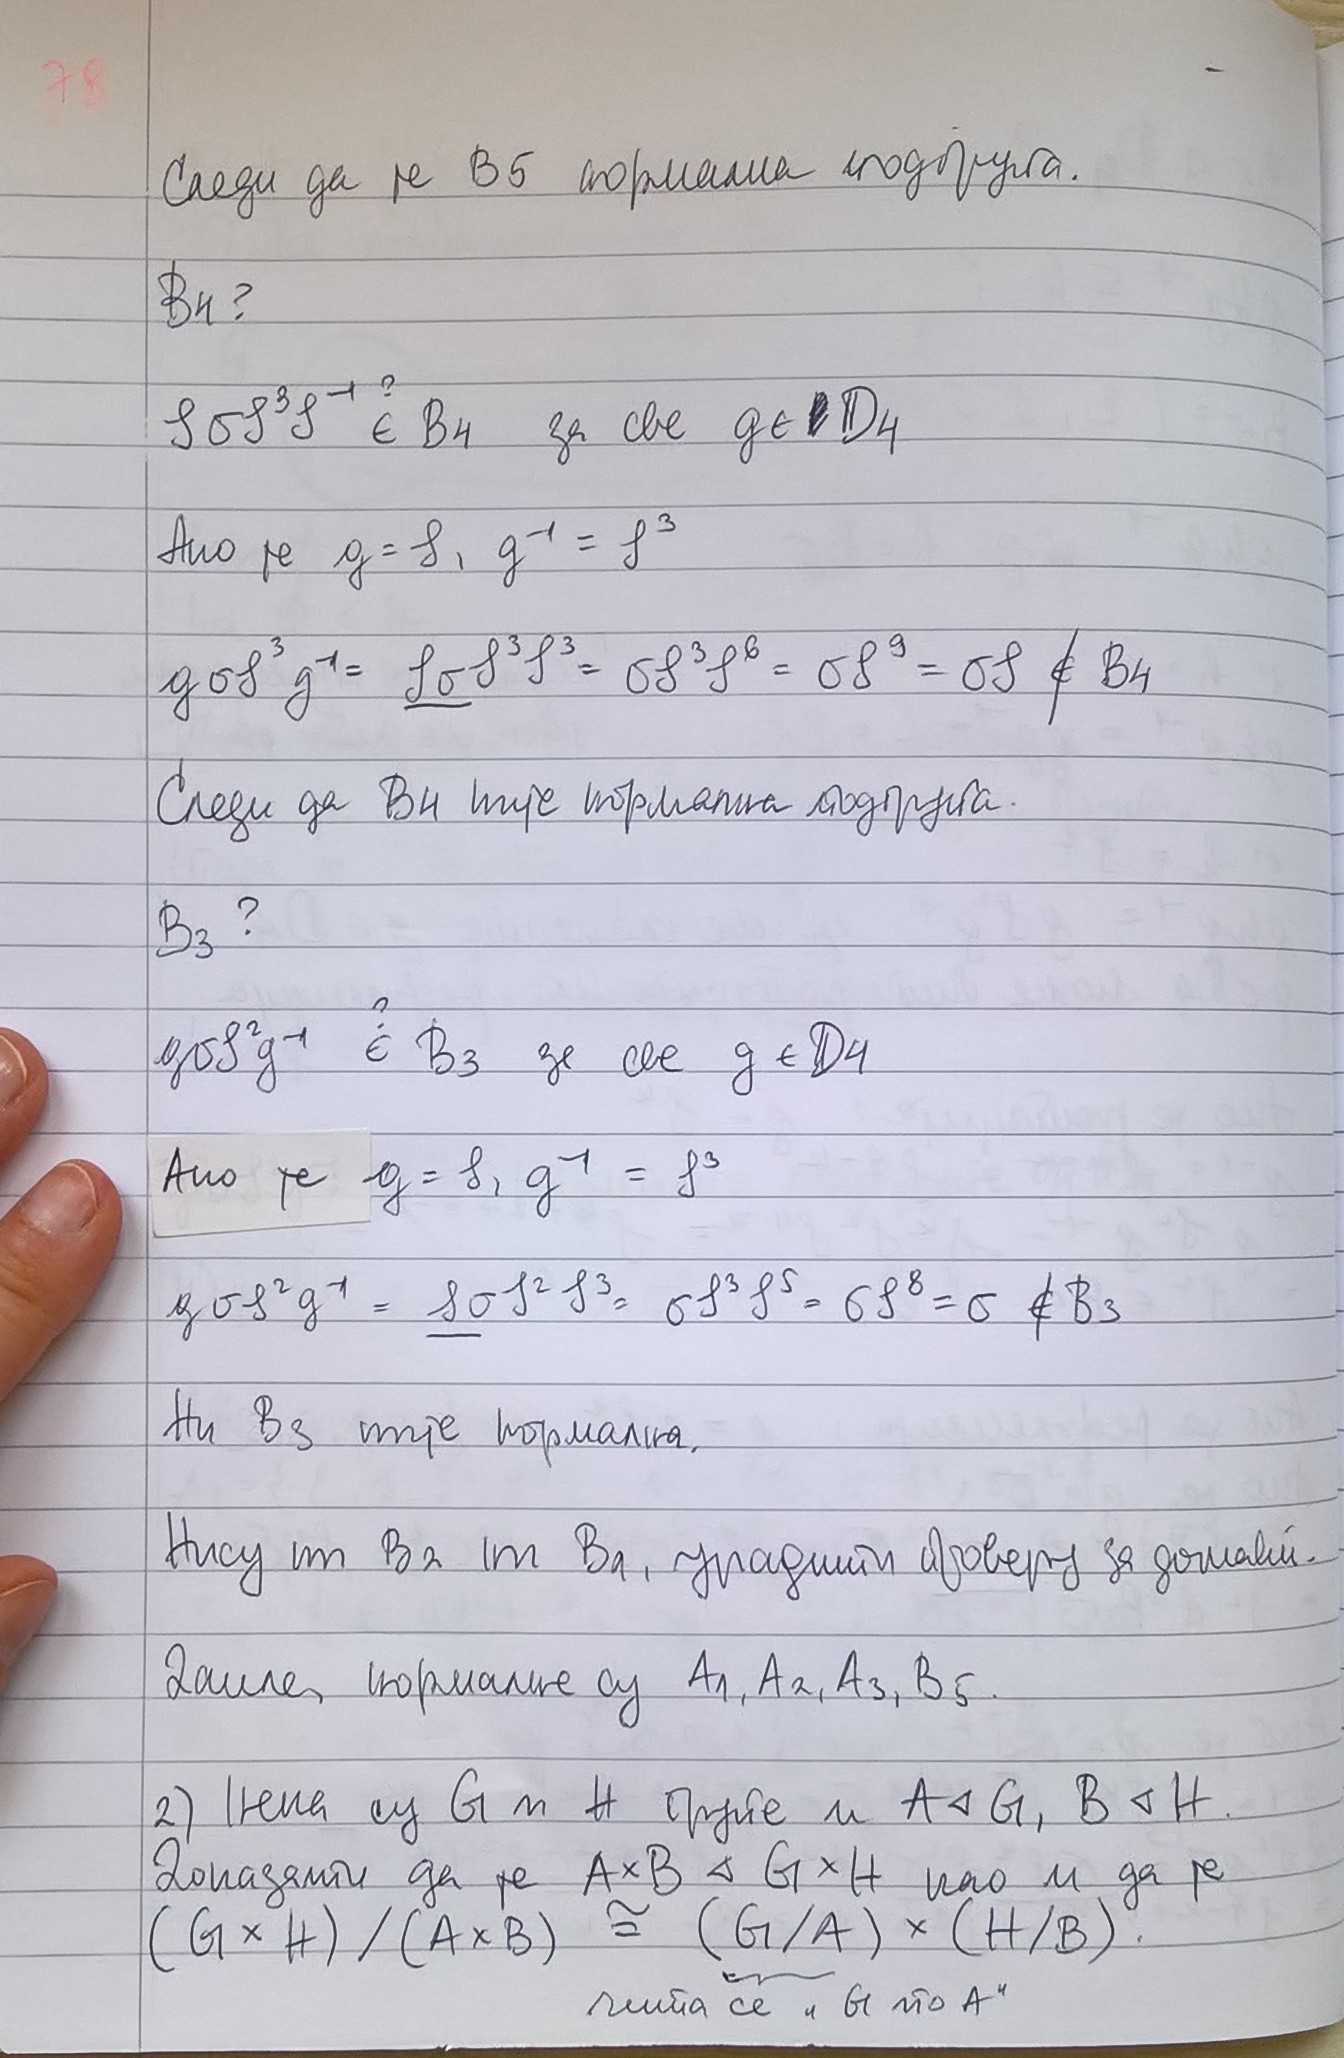 78
Следи да је B5 нормална подгрупа.
B4?
ρσρ³ρ⁻¹ ∈? B4 за све g∈D4
Ако је g=ρ, g⁻¹ = ρ³
gσρ³g⁻¹ = ρσρ³ρ³ = σρ³ρ⁶ = σρ⁹ = σρ ∉ B4
Следи да B4 није нормална подгрупа.
B3?
gσρ²g⁻¹ ∈? B3 за све g∈D4
Ако је g=ρ, g⁻¹ = ρ³
gσρ²g⁻¹ = ρσρ²ρ³ = σρ³ρ⁵ = σρ⁸ = σ ∉ B3
Ни B3 није нормална.
Нису ни B2 ни B1, урадити проверу за домаћи.
Дакле, нормалне су A1, A2, A3, B5.
2) Нека су G и H групе и A◁G, B◁H.
Доказати да је A×B ◁ G×H као и да је
(G×H)/(A×B) ≅ (G/A)×(H/B).
чита се „G по A"